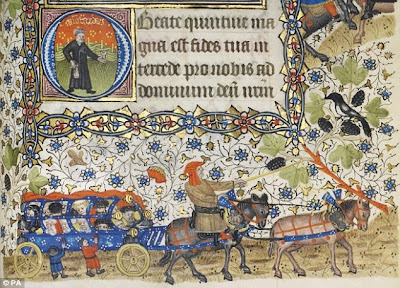 O Beate quintine ma
gna est fides tua in
tercede pro nobis ad
dominum deū nr̄m
© PA